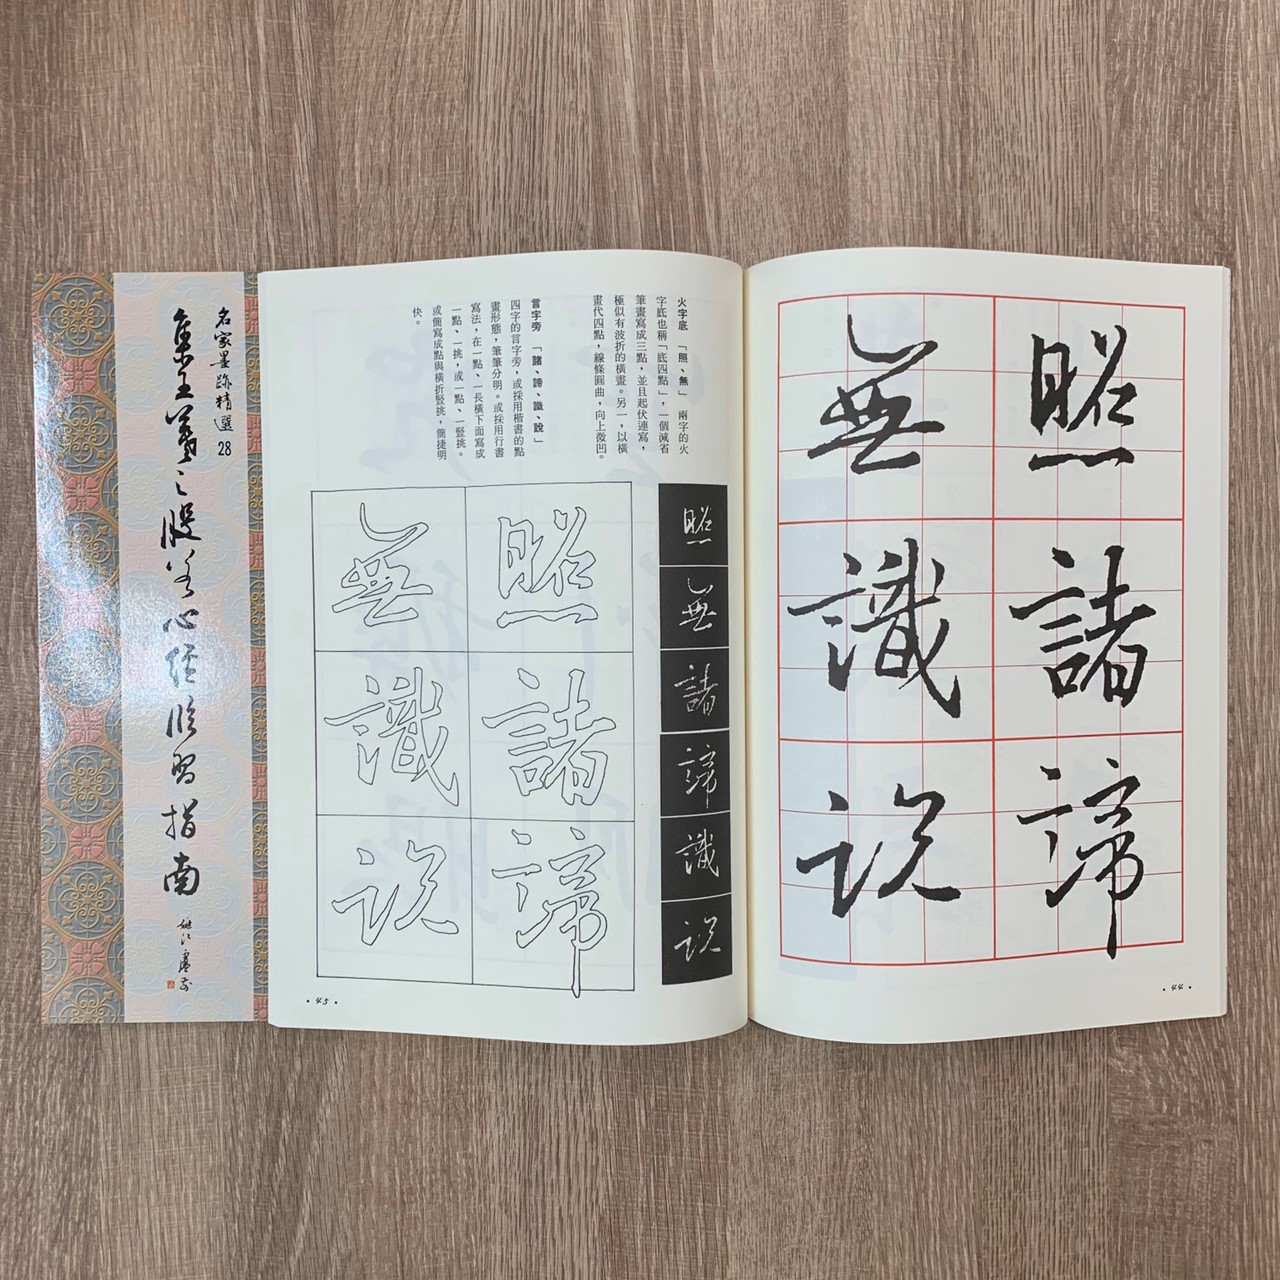 名家墨跡精選28
集王羲之般若心經臨習指南
照諸諦
無識說
•44•
火字底 「照、無」 兩字的火
字底也稱「底四點」，一個減省
筆畫寫成三點，並且起伏連寫，
極似有波折的橫畫。另一，以橫
畫代四點，線條圓曲，向上微凹。
言字旁 「諸、諦、識、說」
四字的言字旁，或採用楷書的點
畫形態，筆筆分明。或採用行書
寫法，在一點、一長橫下面寫成
一點、一挑，或一點、一豎挑。
或簡寫成點與橫折豎挑，簡捷明
快。
照無諸諦識說
照諸諦
無識說
•45•